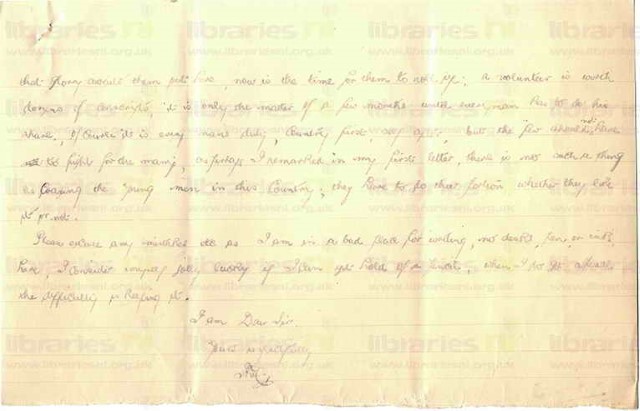 that glory awaits them out here, now is the time for them to roll up; a volunteer is worth
dozens of conscripts, it is only the matter of a few months until every man has to do his
share, of course it is every man's duty, Country first, after, but the few should not have
to fight for the many, as perhaps I remarked in my first letter, there is not such a thing
as forcing the young men in this Country; they have to do their portion whether they like
it or not.
Please excuse any mistakes etc as I am in a bad place for writing, no desks, pen, or ink
here, I consider myself lucky if I can get hold of a, when I do get
the difficulty is keeping it.
I am Dear Sir
Yours
libraries NI
www.librariesni.org.uk